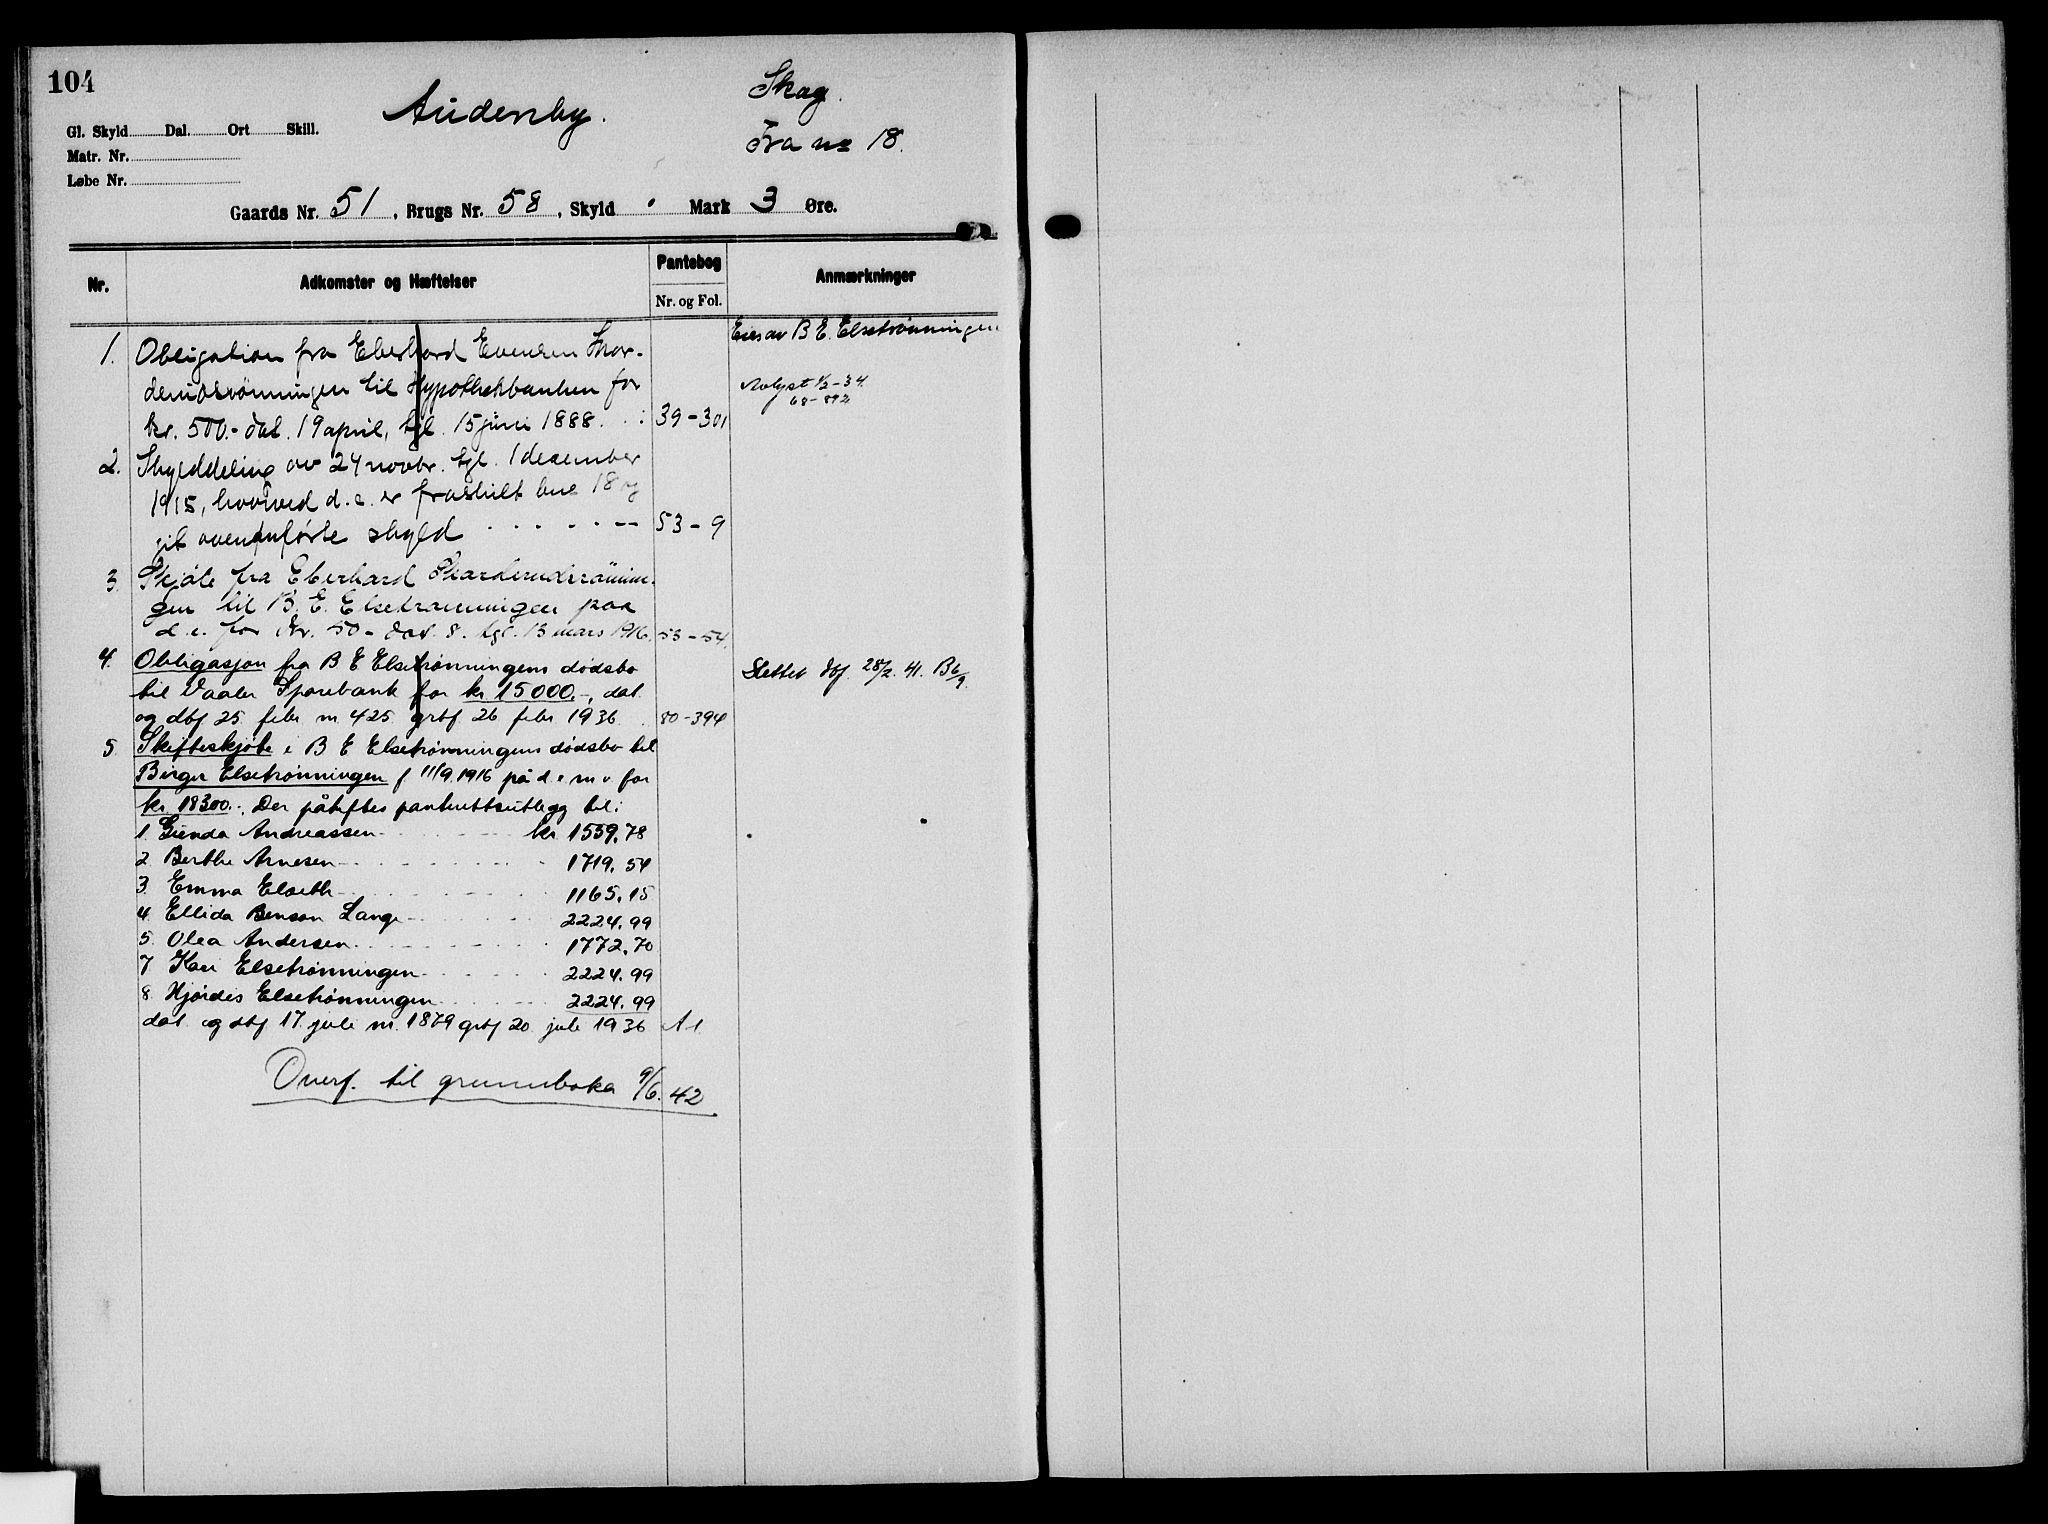 104
Audenby.
Skog.
Fra no 18.
Gl. Skyld Dal. Ort Skill.
Matr. Nr.
Løbe Nr.
Gaards Nr. 51, Brugs Nr. 58, Skyld . Mark 3 Øre.
Nr.
Adkomster og Hæftelser
Pantebog
Nr. og Fol.
Anmærkninger
Eies av B E. Elsetrønningen
1. Obligation fra Eberhard Evensen Skar-
derudsrønningen til Hypothekbanken for
kr. 500.- dat. 19 april, tgl. 15 juni 1888. 39-301
Avlyst 1/2-34.
68-892
2. Skylddeling av 24 novbr. tgl. 1 desember
1915, hvorved d. e. er fraskilt bno 18 og
git ovenanførte skyld 53-9
3. Skjøte fra Eberhard Skarderudsrønnin-
gen til B. E. Elsetrønningen paa
d. e. for kr. 50- dat. 8. tgl. 13 mars 1916. 53-54.
4. Obligasjon fra B E Elsetrønningens dødsbo
til Vaaler Sparebank for kr 15000.-, dat.
og dbf 25. febr nr 425. grbf 26 febr 1936. 80-394
Slettet dbf. 28/2. 41. B 6/9.
5. Skifteskjøte i B E Elsetrønningens dødsbo til
Birger Elsetrønningen f 11/9.1916 på d. e m. v. for
kr 18300.-. Der påheftes panterettsutlegg til:
1. Gunda Andreassen kr. 1559.78
2. Berthe Arnesen 1719.54
3. Emma Elseth 1165.15
4. Ellida Benson Lange 2224.99
5. Olea Andersen 1772.70
7 Kari Elsetrønningen 2224.99
8. Hjørdis Elsetrønningen 2224.99
dat. og dbf 17. juli nr. 1879 grbf 20. juli 1936 A 1
Overf. til grunnboka 9/6. 42